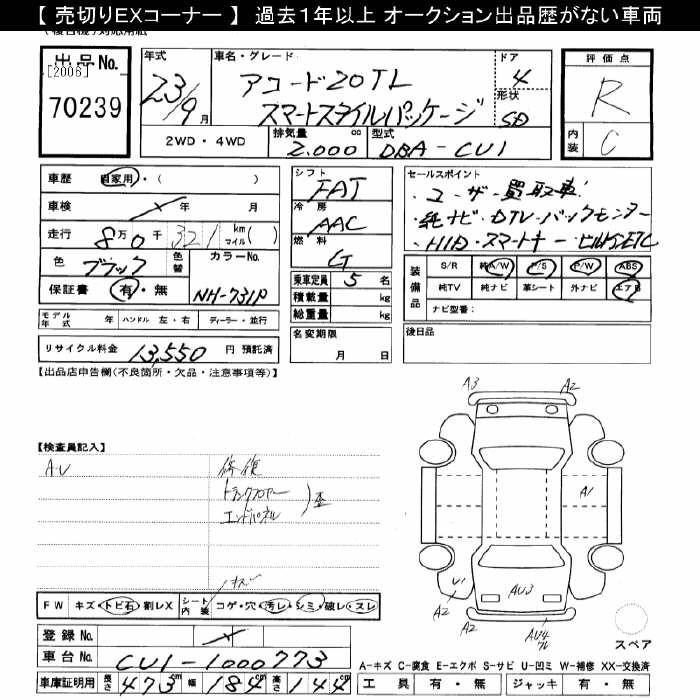 【 売切りEXコーナー 】 過去1年以上 オークション出品歴がない車両
出品No.
[2006]
70239
年式
23/9
月
車名・グレード
アコード20TL
スマートスタイルパッケージ
ドア
4
形状
SD
2WD・4WD
排気量
2.000
cc
型式
DBA-CU1
評価点
R
内装
C
車歴 自家用・( )
車検 年 月
走行 8万0千321 km マイル( )
色 ブラック
色替
カラーNo.
NH-731P
保証書 有・無
モデル年式 年 ハンドル 左・右 ディーラー・並行
リサイクル料金 13,550 円 預託済
シフト
FAT
冷房
AAC
燃料
G
乗車定員 5 名
積載量 kg
総重量 kg
名変期限
月 日
セールスポイント
・ユーザー買取車!
・純ナビ・DTV・バックモニター
・HID・スマートキー・ビルトインETC
装備品
S/R 純A/W P/S P/W ABS
純TV 純ナビ 革シート 外ナビ エアB
ナビ型番:
後日品
【出品店申告欄(不良箇所・欠品・注意事項等)】
【検査員記入】
A・U
修復
トランクフロアー
エンドパネル
歪
キズ
A3
A2
A1
U1
A2
A2
AU3
AU4
FW キズ・トビ石・割レX
シート内装 コゲ・穴・汚レ・シミ・破レ・スレ
登録No.
車台No. CU1-1000773
車庫証明用 長さ 473 cm 幅 184 cm 高さ 144 cm
スペア
A-キズ C-腐食 E-エクボ S-サビ U-凹ミ W-補修 XX-交換済
工具 有・無 ジャッキ 有・無